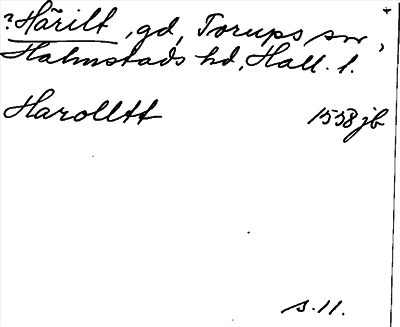 ?Härilt, gd, Torups sn,
Halmstads hd, Hall. l.
Harolltt 1558 jb
s. 11.